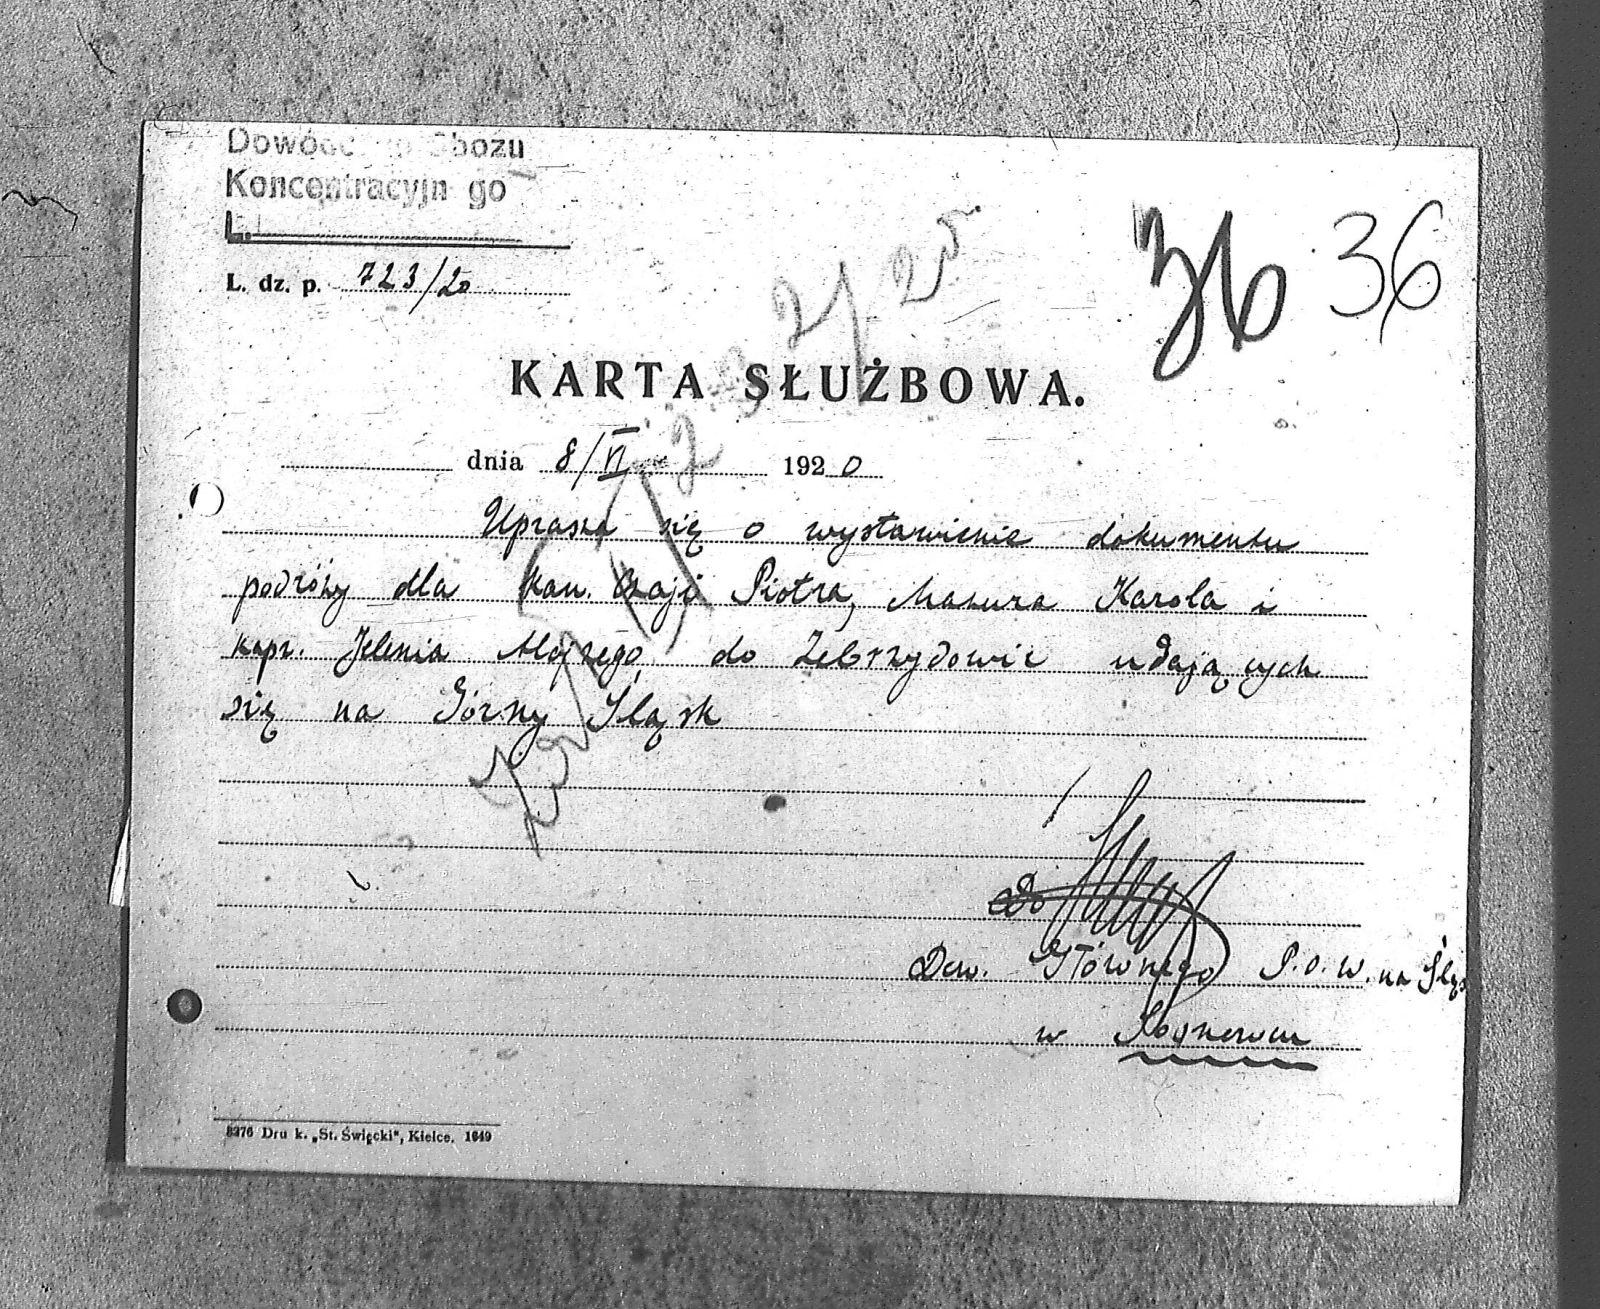 Dowódc Obozu
Koncentracyjn go
L.
L. dz. p. 723/20
36 36
KARTA SŁUŻBOWA.
dnia 8/VI 1920
Uprasza się o wystawienie dokumentu
podróży dla kan. Piotra, Mazura Karola i
kapr. Jelenia Alojzego do Zebrzydowic udających
się na Górny Śląsk
Do
Dow. Głównego P.O.W. na Śląs
w Sosnowcu
8376 Druk. „St. Święcki“, Kielce. 1649